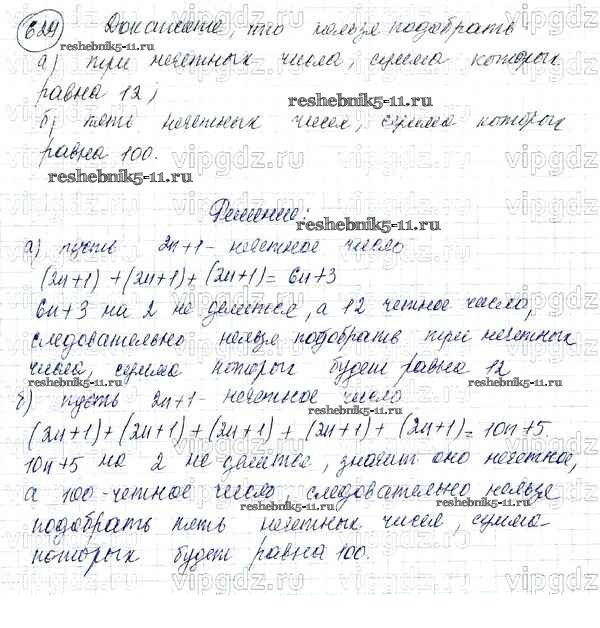 624 Докажите, что нельзя подобрать
reshebnik5-11.ru
а) три нечетных числа, сумма которых
равна 12;
reshebnik5-11.ru
б) пять нечетных чисел, сумма которых
равна 100.
vipgdz.ru
reshebnik5-11.ru
Решение:
reshebnik5-11.ru
а) пусть 2n+1 - нечетное число
(2n+1) + (2n+1) + (2n+1) = 6n+3
6n+3 на 2 не делится, а 12 четное число,
следовательно нельзя подобрать три нечетных
числа, сумма которых будет равна 12
reshebnik5-11.ru reshebnik5-11.ru
б) пусть 2n+1 - нечетное число
(2n+1) + (2n+1) + (2n+1) + (2n+1) + (2n+1) = 10n+5.
10n+5 на 2 не делится, значит оно нечетное,
а 100 - четное число, следовательно нельзя
reshebnik5-11.ru reshebnik5-11.ru
подобрать пять нечетных чисел, сумма
которых будет равна 100.
vipgdz.ru vipgdz.ru vipgdz.ru